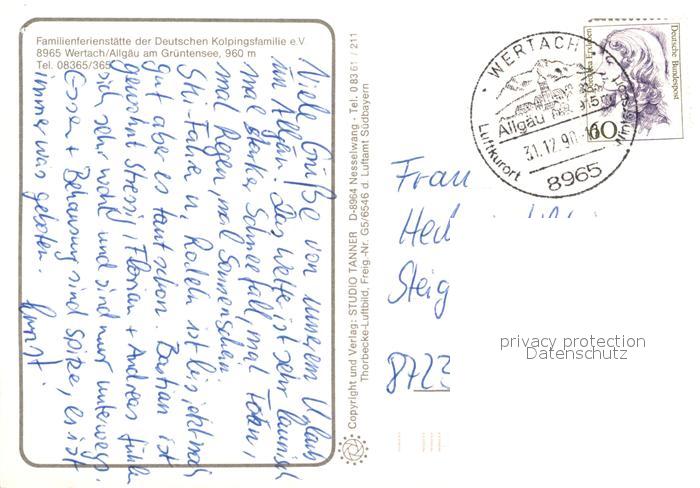 Familienferienstätte der Deutschen Kolpingsfamilie e.V
8965 Wertach/Allgäu am Grüntensee, 960 m
Tel. 08365/365
Viele Grüße von unserem Urlaub
im Allgäu. Das Wetter ist sehr launisch
mal starker Schneefall, mal Föhn,
mal Regen, mal Sonnenschein.
Ski-Fahren u. Rodeln ist bis jetzt noch
gut aber es taut schon. Bastian ist
gewohnt stressig, Florian + Andreas fühlen
sich sehr wohl und sind nur unterwegs.
Essen + Behausung sind Spitze, es ist
immer was geboten.
Copyright und Verlag: STUDIO TANNER D-8964 Nesselwang · Tel. 0 83 61 / 211
Thorbecke-Luftbild, Freig.-Nr. G5/6646 d. Luftamt Südbayern
WERTACH
Allgäu
915
31.12.90
Luftkurort
Wintersport
8965
Deutsche Bundespost
60
Frau
Steig
8723
privacy protection
Datenschutz